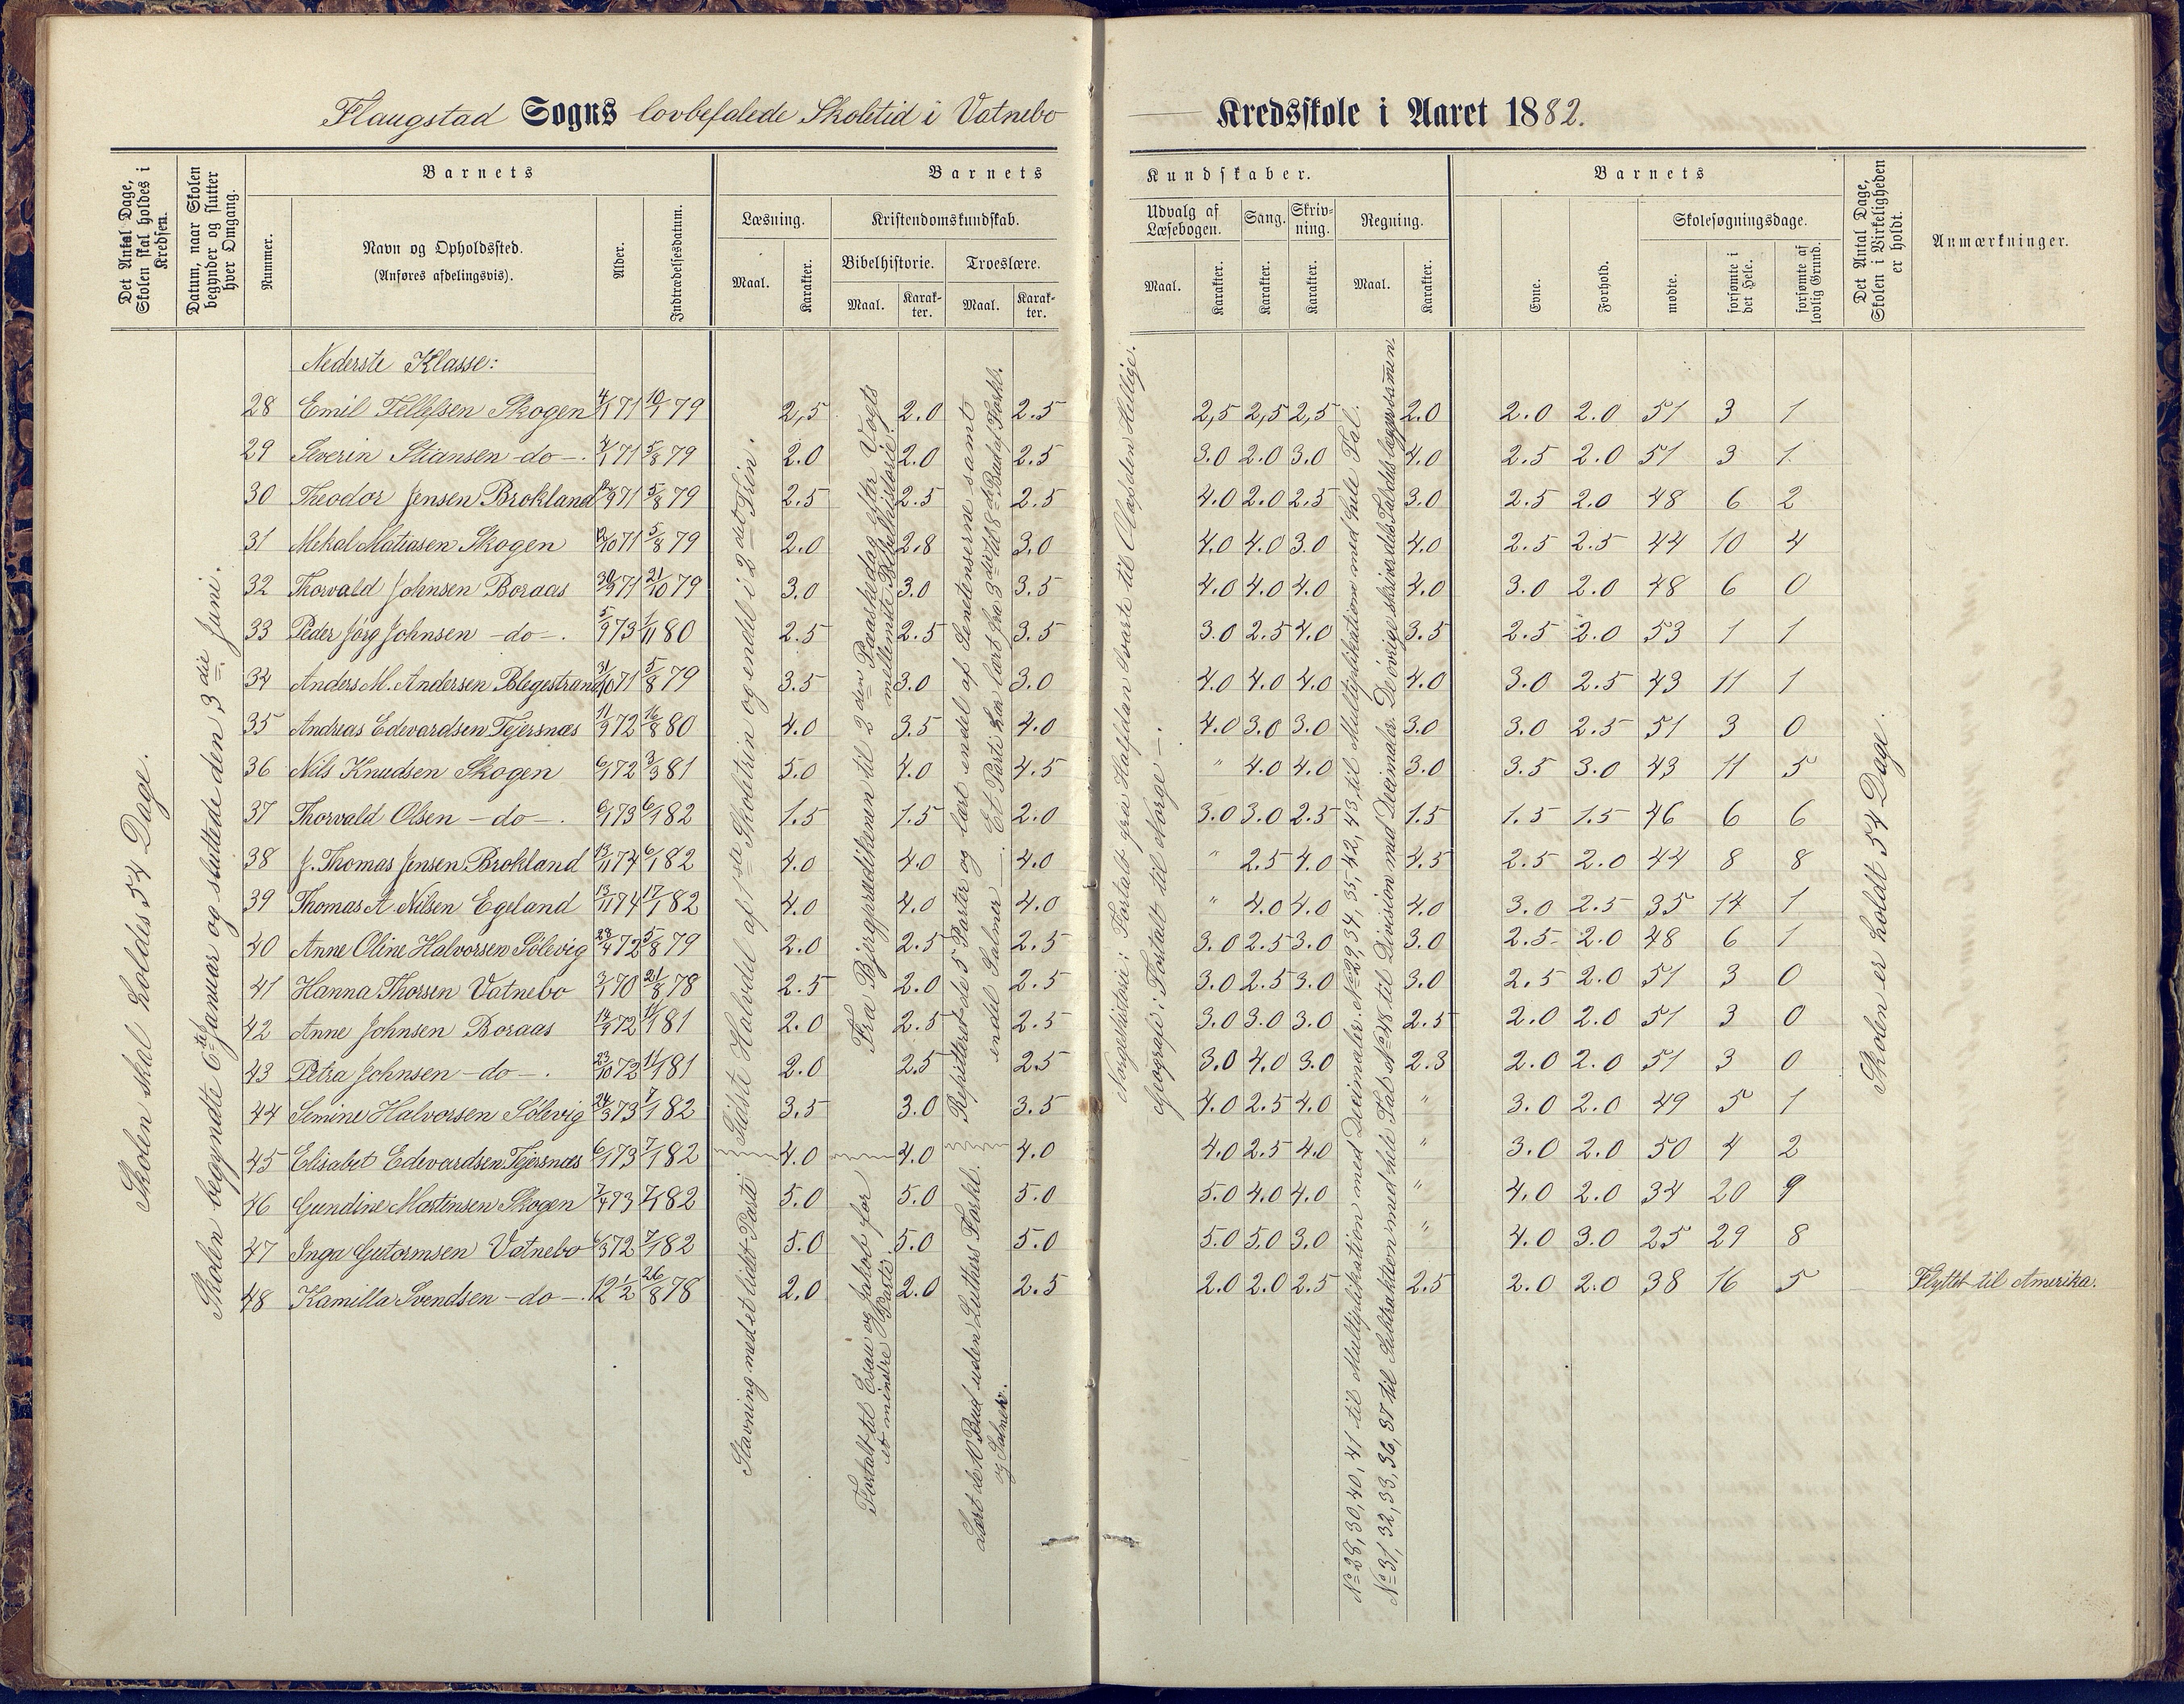 Flaugstad Sogns lovbefalede Skoletid i Vatnebo Kredsskole i Aaret 1882.
Det Antal Dage, Skolen skal holdes i Kredsen.
Datum, naar Skolen begynder og slutter hver Omgang.
Barnets
Nummer.
Navn og Opholdssted.
(Anføres afdelingsvis).
Alder.
Indtrædelsesdatum.
Barnets Kundskaber.
Læsning.
Maal. Karakter.
Kristendomskundskab.
Bibelhistorie. Troeslære.
Maal. Karakter. Maal. Karakter.
Udvalg af Læsebogen.
Maal. Karakter.
Sang. Karakter.
Skrivning. Karakter.
Regning.
Maal. Karakter.
Barnets
Evne. Forhold.
Skolesøgningsdage.
mødte. forsømte i det Hele. forsømte af lovlig Grund.
Det Antal Dage, Skolen i Virkeligheden er holdt.
Anmærkninger.
Skolen skal holdes 54 Dage.
Skolen begyndte 6te Januar og sluttede den 3die Juni.
Nederste Klasse:
28 Emil Tellefsen Skogen 4/1 71 10/1 79 2,5 2.0 2.5 2,5 2,5 2,5 2.0 2.0 2.0 51 3 1
29 Severin Stiansen -do-. 4/1 71 5/8 79 2.0 2.0 2.5 3.0 2.0 3.0 4.0 2.5 2.0 51 3 1
30 Theodor Jensen Brokland 71 5/8 79 2.5 2.5 2.5 4.0 2.0 2.5 3.0 2.5 2.0 48 6 2
31 Mekal Matiasen Skogen 71 5/8 79 2.0 2.8 3.0 4.0 4.0 3.0 4.0 2.5 2.5 44 10 4
32 Thorvald Johnsen Boraas 71 21/10 79 3.0 3.0 3.5 4.0 4.0 4.0 4.0 3.0 2.0 48 6 0
33 Peder Jörg Johnsen -do-. 5/9 73 1/11 80 2.5 2.5 3.5 3.0 2.5 4.0 3.5 2.5 2.0 53 1 1
34 Anders M. Andersen Blegestrand 31/10 71 5/8 79 3.5 3.0 3.0 4.0 4.0 4.0 4.0 3.0 2.5 43 11 1
35 Andreas Edevardsen Tejersnæs 11/9 72 16/8 80 4.0 3.5 4.0 4.0 3.0 3.0 3.0 3.0 2.5 51 3 0
36 Nils Knudsen Skogen 6/1 72 3/3 81 5.0 4.0 4.5 " 4.0 4.0 3.0 3.5 3.0 43 11 5
37 Thorvald Olsen -do-. 6/1 73 6/1 82 1.5 1.5 2.0 3.0 3.0 2.5 1.5 1.5 1.5 46 6 6
38 J. Thomas Jensen Brokland 13/11 74 6/1 82 4.0 4.0 4.0 " 2.5 4.0 4.5 2.5 2.0 44 8 8
39 Thomas A. Nilsen Egeland 13/11 74 17/1 82 4.0 4.0 4.0 " 4.0 4.0 4.0 3.0 2.5 35 14 1
40 Anne Oline Halvorsen Sölevig 28/4 72 5/8 79 2.0 2.5 2.5 3.0 2.5 3.0 3.0 2.5 2.0 48 6 1
41 Hanna Thorsen Vatnebo 3/1 70 21/8 78 2.5 2.0 2.5 3.0 2.5 3.0 3.0 2,5 2.0 51 3 0
42 Anne Johnsen Boraas 14/9 72 11/1 81 2.0 2.5 2.5 3.0 3.0 3.0 2.5 2.0 2.0 51 3 0
43 Petra Johnsen -do-. 23/10 72 11/1 81 2.0 2.5 2.5 3.0 4.0 3.0 2.3 2.0 2.0 51 3 0
44 Semine Halvorsen Sölevig 24/3 73 7/1 82 3.5 3.0 3.5 4.0 2.5 4.0 " 3.0 2.0 49 5 1
45 Elisabet Edevardsen Tejersnæs 6/1 73 7/1 82 4.0 4.0 4.0 4.0 2.5 4.0 " 3.0 2.0 50 4 2
46 Gundine Martinsen Skogen 7/4 73 7/1 82 5.0 5.0 5.0 5.0 4.0 4.0 " 4.0 2.0 34 20 9
47 Inga Gutormsen Vatnebo 6/3 72 7/1 82 5.0 5.0 5.0 5.0 5.0 3.0 " 4.0 3.0 25 29 8
48 Kamilla Svendsen -do-. 12 1/2 26/8 78 2.0 2.0 2.5 2.0 2.0 2.5 2.5 2.0 2.0 38 16 5 Flyttet til Amerika.
Sidste Halvdel af 1ste Skoletrin og endel i 2det Trin.
Stavning med et lidet Parti.
Fra Bjergprædikenen til 2den Paaskedag efter Vogts mellemste Bibelhistorie.
Fortalt til Esau og Jakob for et mindre Parti.
Repetteret de 5 Parter og lært endel af Sentenserne samt endel Salmer -. Et Parti har lært fra 3die til 8de Bud af Forkl.
Lært de 10 Bud uden Luthers Forkl. og Salmer.
Norgeshistorie: Fortalt fra Halfdan Svarte til Olaf den Hellige.
Geografi: Fortalt til Norge -.
No 28, 30, 40, 41 til Multiplikation med Decimaler. No 29, 34, 35, 42, 43, til Multiplikation med hele Tal.
No 31, 32, 33, 36, 37 til Subtraktion med hele Tal. No 48 til Division med Decimaler. De övrige skriver
Skolen er holdt 54 Dage.